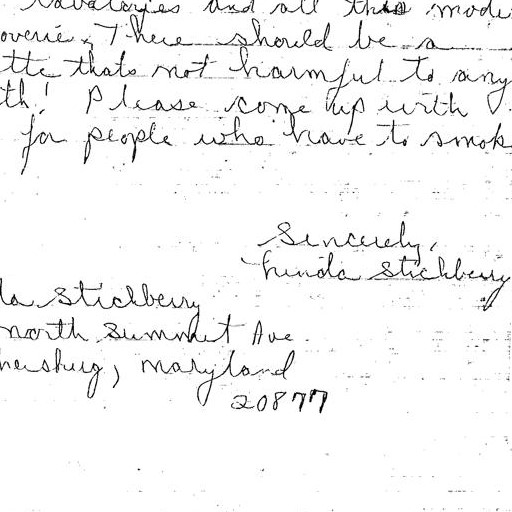 and all this mode
overie. There should be a
tte thats not harmful to any
th! Please come up with
for people who have to smok
Sincerely,
Linda Stichberry
da Stichberry
north Summit Ave
hersburg, maryland
20877